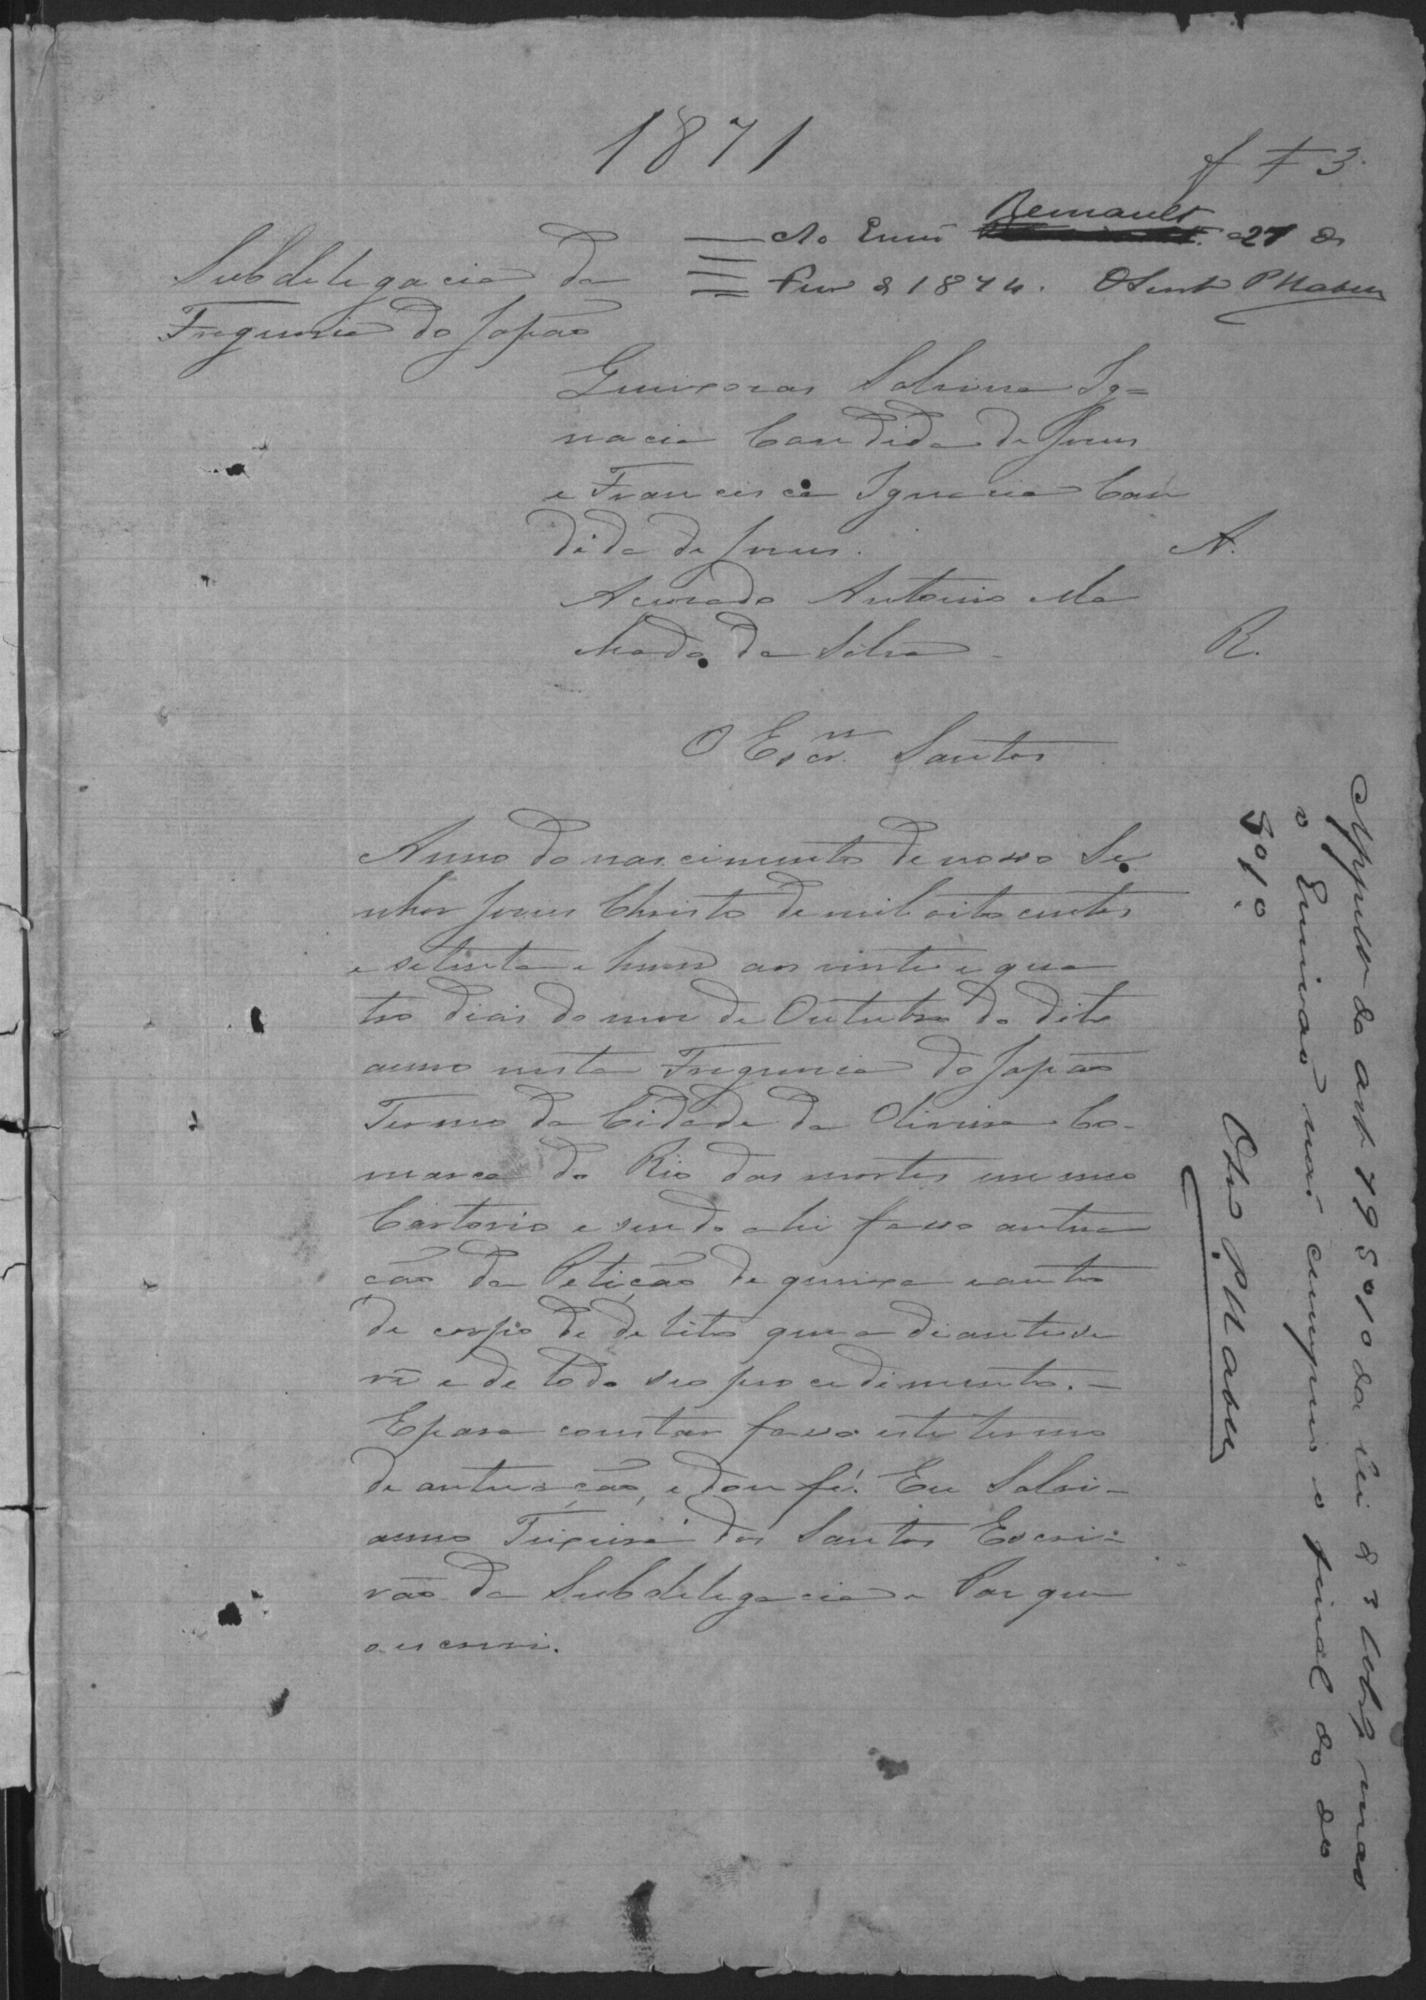 1871
f F 3
Ao Escrm Remault a 27 de
Fevr de 1874. O Sent
Subdelegacia da
Freguesia do Japão
Queixosas Salvina Ig=
nacia Candida de Jesus
e Francisca Ignacia Can
dida de Jesus. A.
Acusado Antonio Ma
chado da Silva - R.
O Escr.m Santos
Anno do nascimento de nosso Se
nhor Jesus Christo de mil oito centos
e setenta e hum aos vinte e qua
tro dias do mez de Outubro do dito
anno nesta Freguesia do Japão
Termo da Cidade da Oliveira Co-
marca do Rio das mortes em meo
Cartorio e sendo ahi faço autua
ção da Petição de queixa e auto
de corpo de delito que a diante se
vê e de todo seo procedimento. -
E para constar faço este termo
de autuação, e dou fé. Eu Salvi-
anno Teixeira dos Santos Escri-
vão da Subdelegacia e Paz que
o escrevi.
Appello do art 79 § 1º da Lei de 3 Dobrº, mas
o Escrivão não cumprio o final do do
§ 1º.